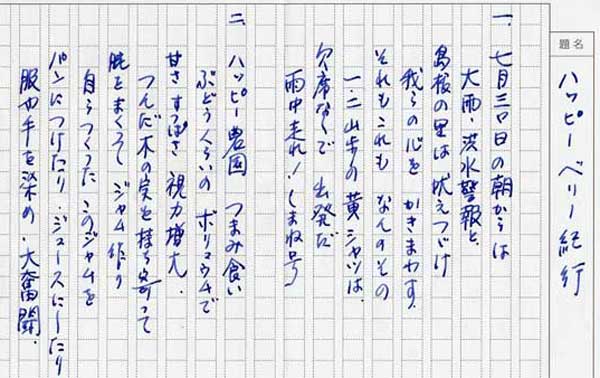 題名
ハッピーベリー紀行
一、七月三〇日の朝からは
大雨・洪水警報と、
島根の里は吠えつづけ
我らの心を かきまわす.
それもこれも なんのその
一・二山歩の黄シャツは、
欠席なくで 出発だ
雨中走れ!しまね号
二、ハッピー農園 つまみ食い
ぶどうくらいの ボリュウムで
甘さすっぱさ 視力増大.
つんだ木の実を 持ち寄って
腕をまくって ジャム作り
自らつくった このジャムを
パンにつけたり・ジュースにしたり
服や手を染め.大奮闘.